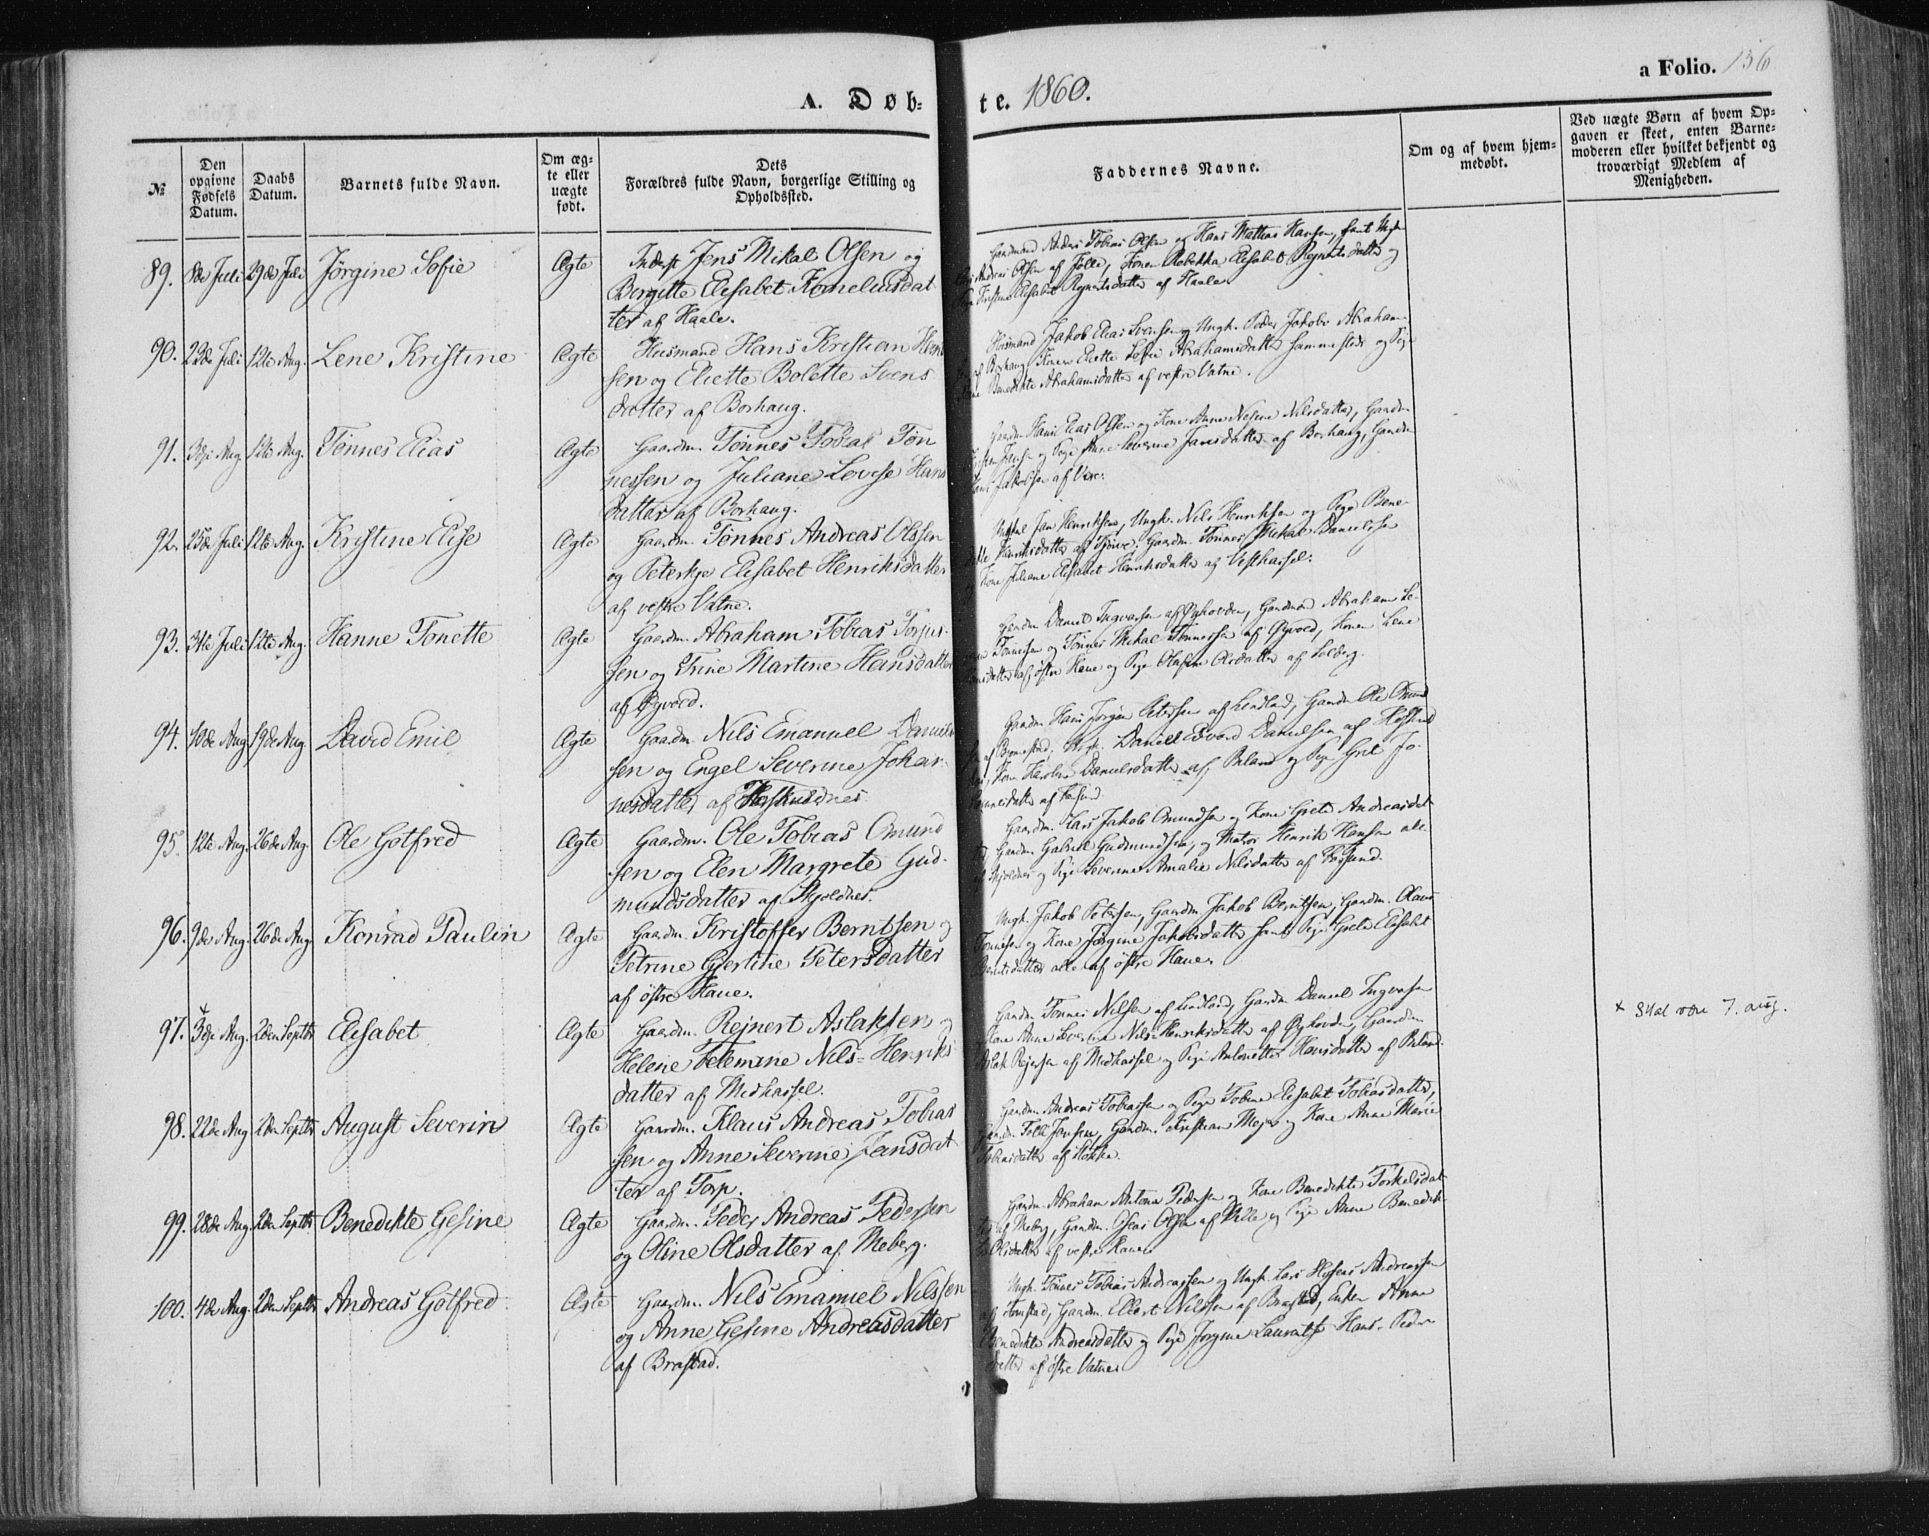 A. Døb-
te. 1860.
a Folio. 156
№
Den opgivne Fødsels Datum.
Daabs Datum.
Barnets fulde Navn.
Om ægte eller uægte født.
Dets
Forældres fulde Navn, borgerlige Stilling og
Opholdssted.
Faddernes Navne.
Om og af hvem hjem-
medøbt.
Ved uægte Børn af hvem Op-
gaven er skeet, enten Barne-
moderen eller hvilket bekjendt og
troværdigt Medlem af
Menigheden.
89. 8de Juli 29de Juli Jörgine Sofie Ægte Inderst Jens Mikal Olsen og
Borgitte Elisabet Korneliusdat
ter af Haale.
Gaardmand Andreas Tobias Olsen og Hans Mathias Hansen, samt Ungk.
Andreas Olsen af Jølle, Konen Rebekka Elisabet Regnertsdatter og
Kristine Elisabet Regnertsdatter af Haale
90. 22de Juli 12te Aug. Lene Kristine Ægte Husmand Hans Kristian
sen og Eliette Bolette Svens
datter af Borhaug.
Husmand Jakob Elias Svensen og Ungk. Peder Jakob Abraham
af Borhaug, Konen Eliette Sofie Abrahamsdatter sammesteds og Pige
Benedikte Abrahamsdatter af vestre Vatne.
91. 3die Aug 12te Aug. Tønnes Elias Ægte Gaardm. Tönnes Tobias Tön
nessen og Juliane Lovise Hans
datter af Borhaug.
Gaardm Hans Elias Olsen og Kone Anne Nilsdatter, Gaardm
og Pige Anne Severine Jansdatter af Borhaug, Gaardm
Jakobsen af Vere.
92. 25de Juli 12te Aug. Kristine Elise Ægte Gaardm. Tönnes Andreas Olsen
og Peterkje Elisabet Henriksdatter
af vestre Vatne.
Jan Henriksen, Ungk. Nils Henriksen og Pige Bene-
Henriksdatter af Tjörve. Gaardm. Tönnes Mikal Danielsen
Kone Juliane Elisabet Henriksdatter af Vesthassel.
93. 31te Juli 12te Aug. Hanne Tonette Ægte Gaardm. Abraham Tobias Torjus-
sen og Trine Martine Hansdatter
af Ögvord.
Gaardm Daniel Ingvarsen af Öyhovden, Gaardmand Abraham
Tønnesen og Tönnes Mikal Tönnessen af Ögvord, Konen Lene
af östre Haue og Pige Olsdatter af Solberg.
94. 10de Aug 19de Aug. David Emil Ægte Gaardm Nils Emanuel Daniel
sen og Engel Severine Johan-
nesdatter af
Gaardm. Hans Jörgen Petersen af Lindland, Gaardm Ole Omund
Ungk. Daniel Edvard Danielsen af
Kone Danielsdatter af Briland og Pige Grete Jo-
hannesdatter af Farsund.
95. 12te Aug. 26de Aug. Ole Gotfred Ægte Gaardm. Ole Tobias Omund
sen og Elen Margrete Gud-
mundsdatter af Skjoldnes.
Gaardm. Lars Jakob Omundsen og Kone Grete Andreasdat-
Gaardm Gabriel Gudmundsen, og Matros Henrik Hansen alle
af Skjoldnes og Pige Severine Amalie Nilsdatter af Farsund.
96. 9de Aug. 26de Aug Konrad Paulin Ægte Gaardm. Kristoffer Berntsen og
Petrine Gjertine Petersdatter
af östre Haue.
Ungk. Jakob Petersen, Gaardm Jakob Berntsen, Gaardm. Olaus
Tönnesen og Kone Jörgine Jakobsdatter samt Pige Grete Elisabet
Berntsdatter alle af östre Haue.
97. 3die Aug. 2den Septbr Elisabet Ægte Gaardm. Rejnert Aslaksen og
Helene Telemine Nils-Henriks
datter af Midhassel.
Gaardm. Tönnes Nilsen af Lindland, Gaardm Daniel Ingvarsen
Kone Anne Severine Nils Henriksdatter af Öyhovden, Gaardm
Aslak Rejersen af Midhassel og Pige Antonette Hansdatter af Briland.
x Skal være 7. aug.
98. 22de Aug 2den Septbr August Severin Ægte Gaardm. Klaus Andreas Tobias
sen og Anne Severine Jansdat
ter af Torp.
Gaardm. Andreas Tobiassen og Pige Tobine Elisabet Tobiasdatter,
Gaardm Jansen, Gaardm. Kristian Mejer og Kone Anne Marie
Tobiasdatter af
99. 28de Aug 2den Septbr Benedikte Gesine Ægte Gaardm. Peder Andreas Pedersen
og Oline Olsdatter af Meberg.
Gaardm Abraham Anton Pedersen og Kone Benedikte Torkelsdat-
ter af Meberg, Gaardm. Olsen af og Pige Anne Benedikte
Olsdatter af vestre Haue.
100. 4de Aug. 2den Septbr Andreas Gotfred Ægte Gaardm. Nils Emanuel Nilssen
og Anne Gesine Andreasdatter
af Brastad.
Ungk. Tönnes Tobias Andreassen og Ungk. Lars Andreassen
Gaardm. Ellert Nilssen af Brastad, Enken Anne
Benedikte Andreasdatter og Pige Jörgine Laurentse Hans-Peder
datter af östre Vatne